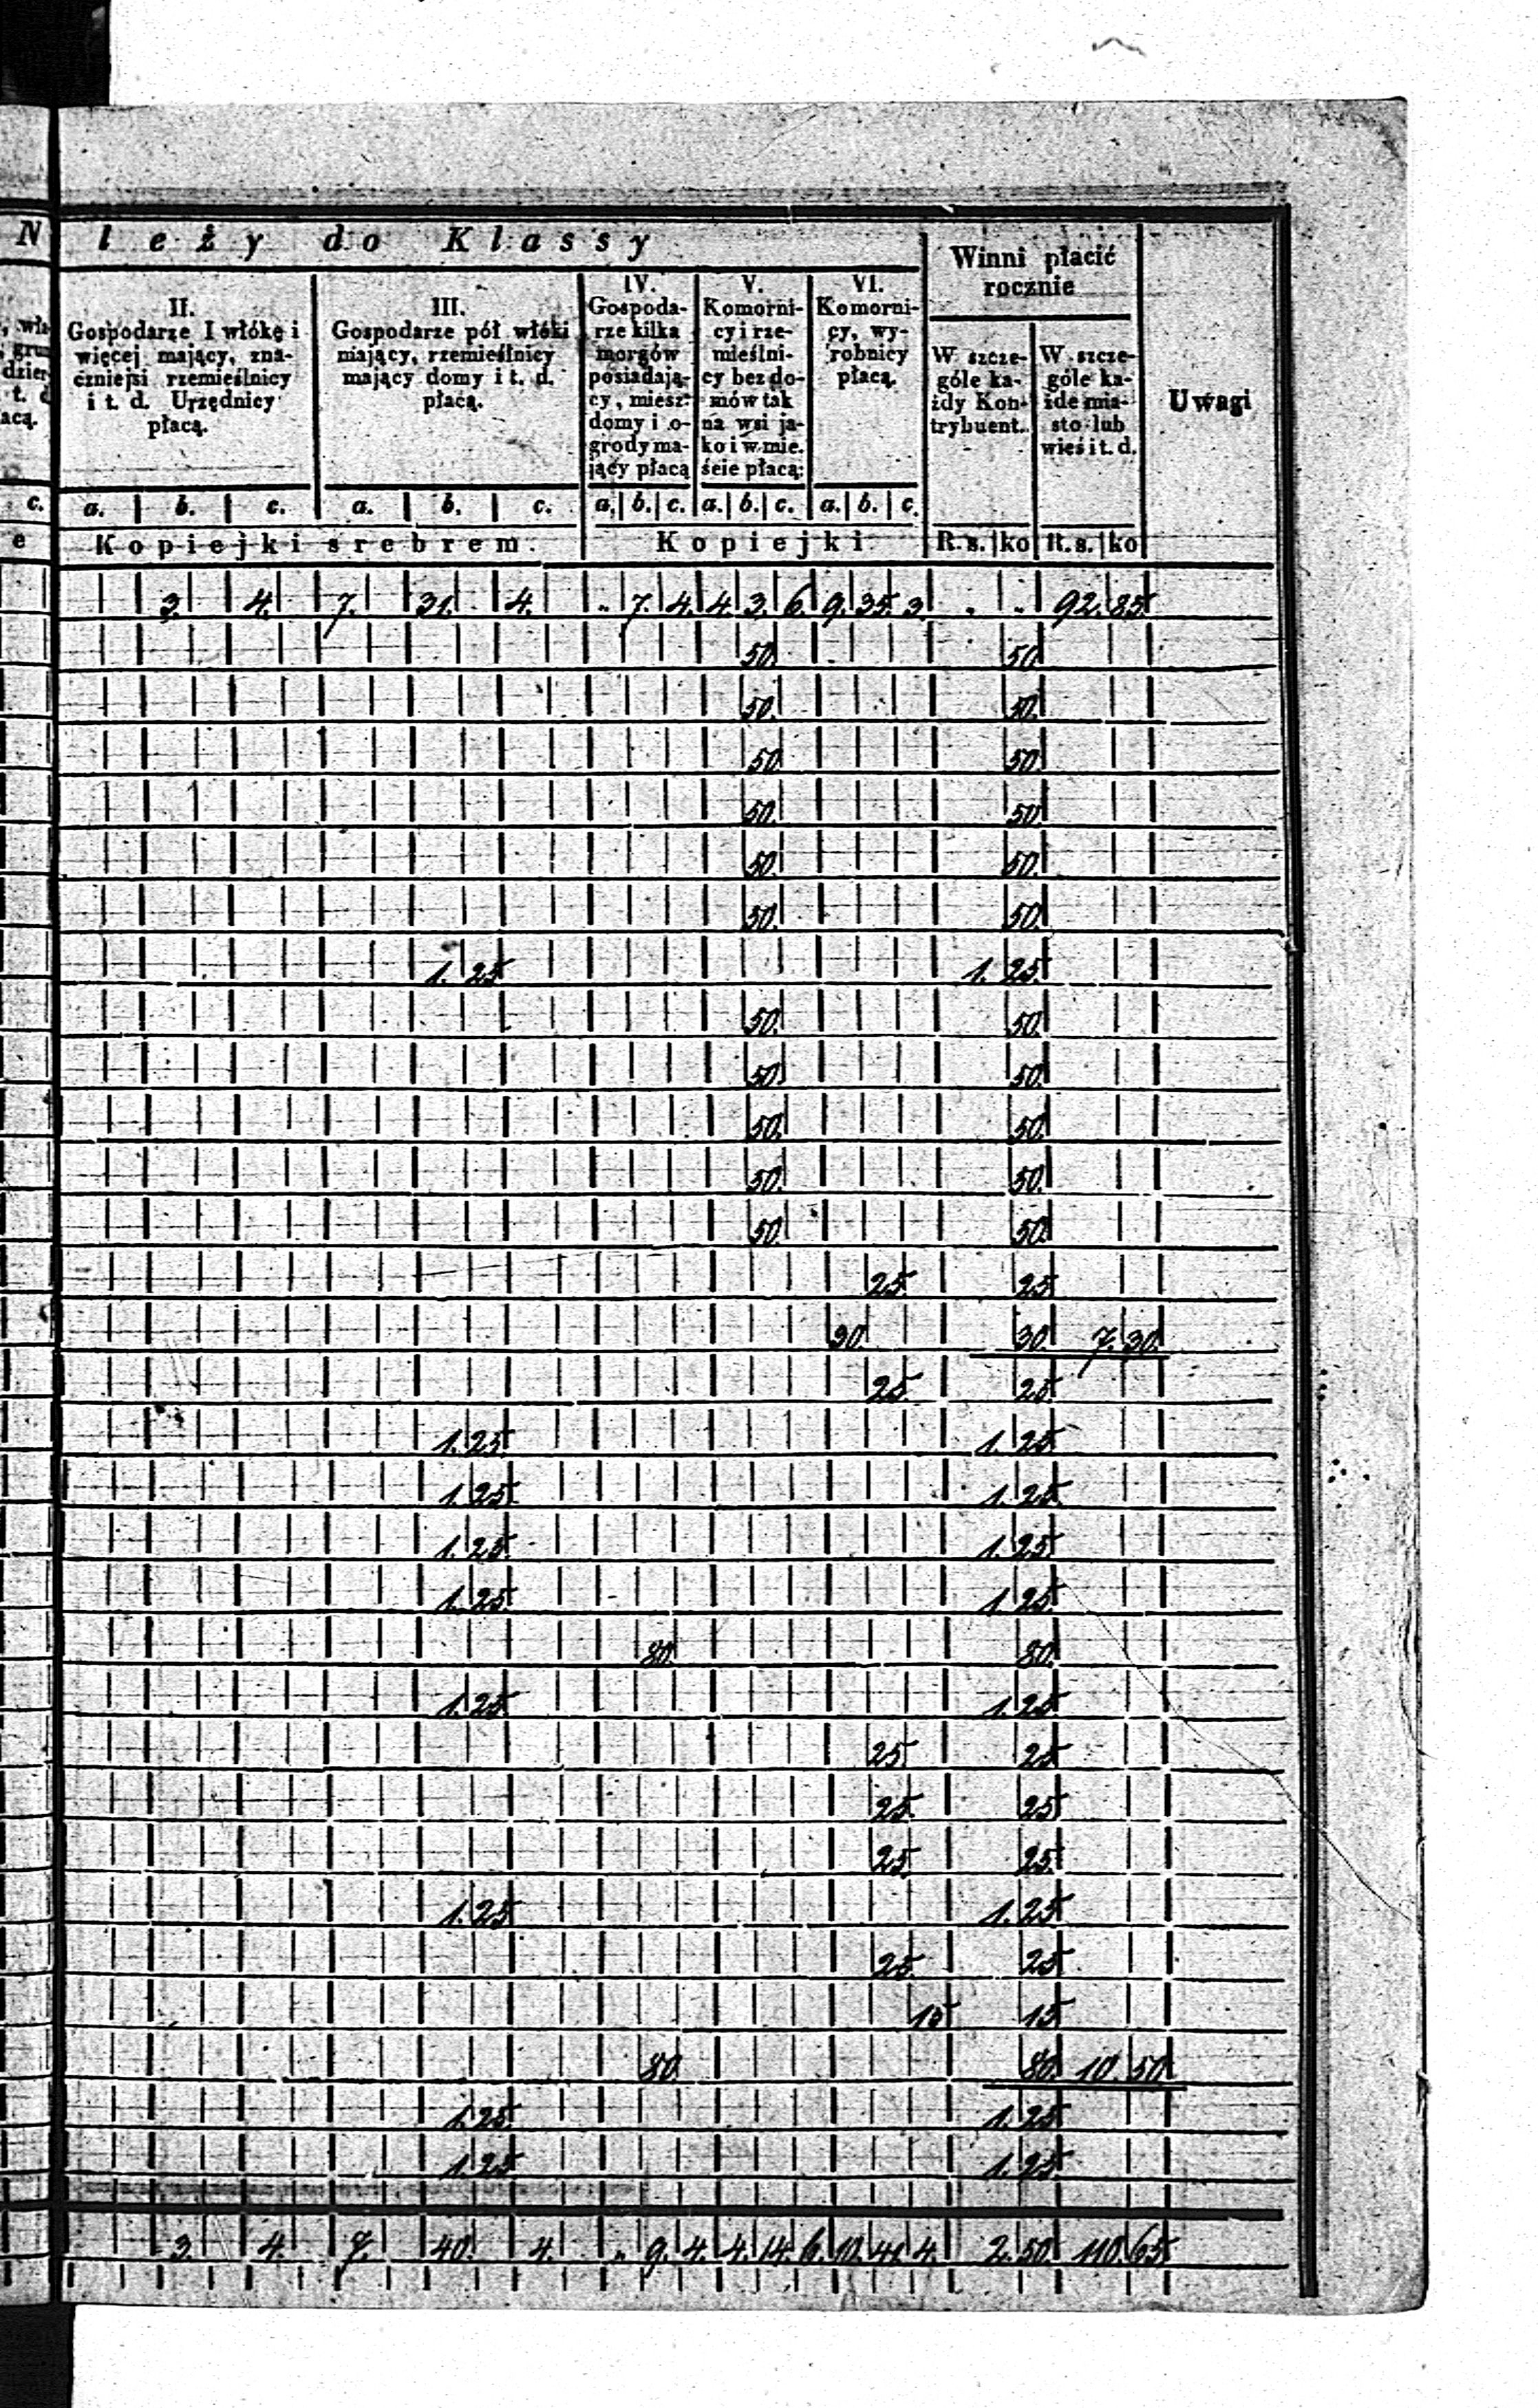 N l e ż y d o K l a s s y
Winni płacić
rocznie
Uwagi
II.
Gospodarze I włókę i
więcej mający, zna-
czniejsi rzemieślnicy
i t. d. Urzędnicy
płacą.
III.
Gospodarze pół włóki
mający, rzemieślnicy
mający domy i t. d.
płacą.
IV.
Gospoda-
rze kilka
morgów
posiadają-
cy, miesz:
domy i o-
grody ma-
jący płacą
V.
Komorni-
cy i rze-
mieślni-
cy bez do-
mów tak
na wsi ja-
ko i w mie.
ście płacą:
VI.
Komorni-
cy, wy-
robnicy
płacą.
W szcze-
góle ka-
żdy Kon-
trybuent.
W szcze-
góle ka-
żde mia-
sto lub
wieś i t. d.
c. a. b. c. a. b. c. a. b. c. a. b. c. a. b. c.
e Kopiejki srebrem. Kopiejki R.s. ko R.s. ko
3. 4. 7. 31. 4. „ 7. 4. 4. 3. 6. 9. 35. 3. „ „ 92. 85.
50. 50.
50. 50.
50. 50.
50. 50.
50. 50.
50. 50.
1. 25 1. 25.
50. 50.
50. 50.
50. 50.
50. 50.
50. 50.
25 25
30. 30. 7. 30.
25. 25
1. 25. 1. 25.
1. 25. 1. 25.
1. 25. 1. 25.
1. 25. 1. 25.
80. 80.
1. 25 1. 25
25. 25
25. 25
25. 25.
1. 25 1. 25
25. 25
15 15
80. 80. 10. 50.
1. 25. 1. 25
1. 25 1. 25
3. 4. 7. 40. 4. „ 9. 4. 4. 14. 6. 10. 41. 4. 2. 50. 110. 65.